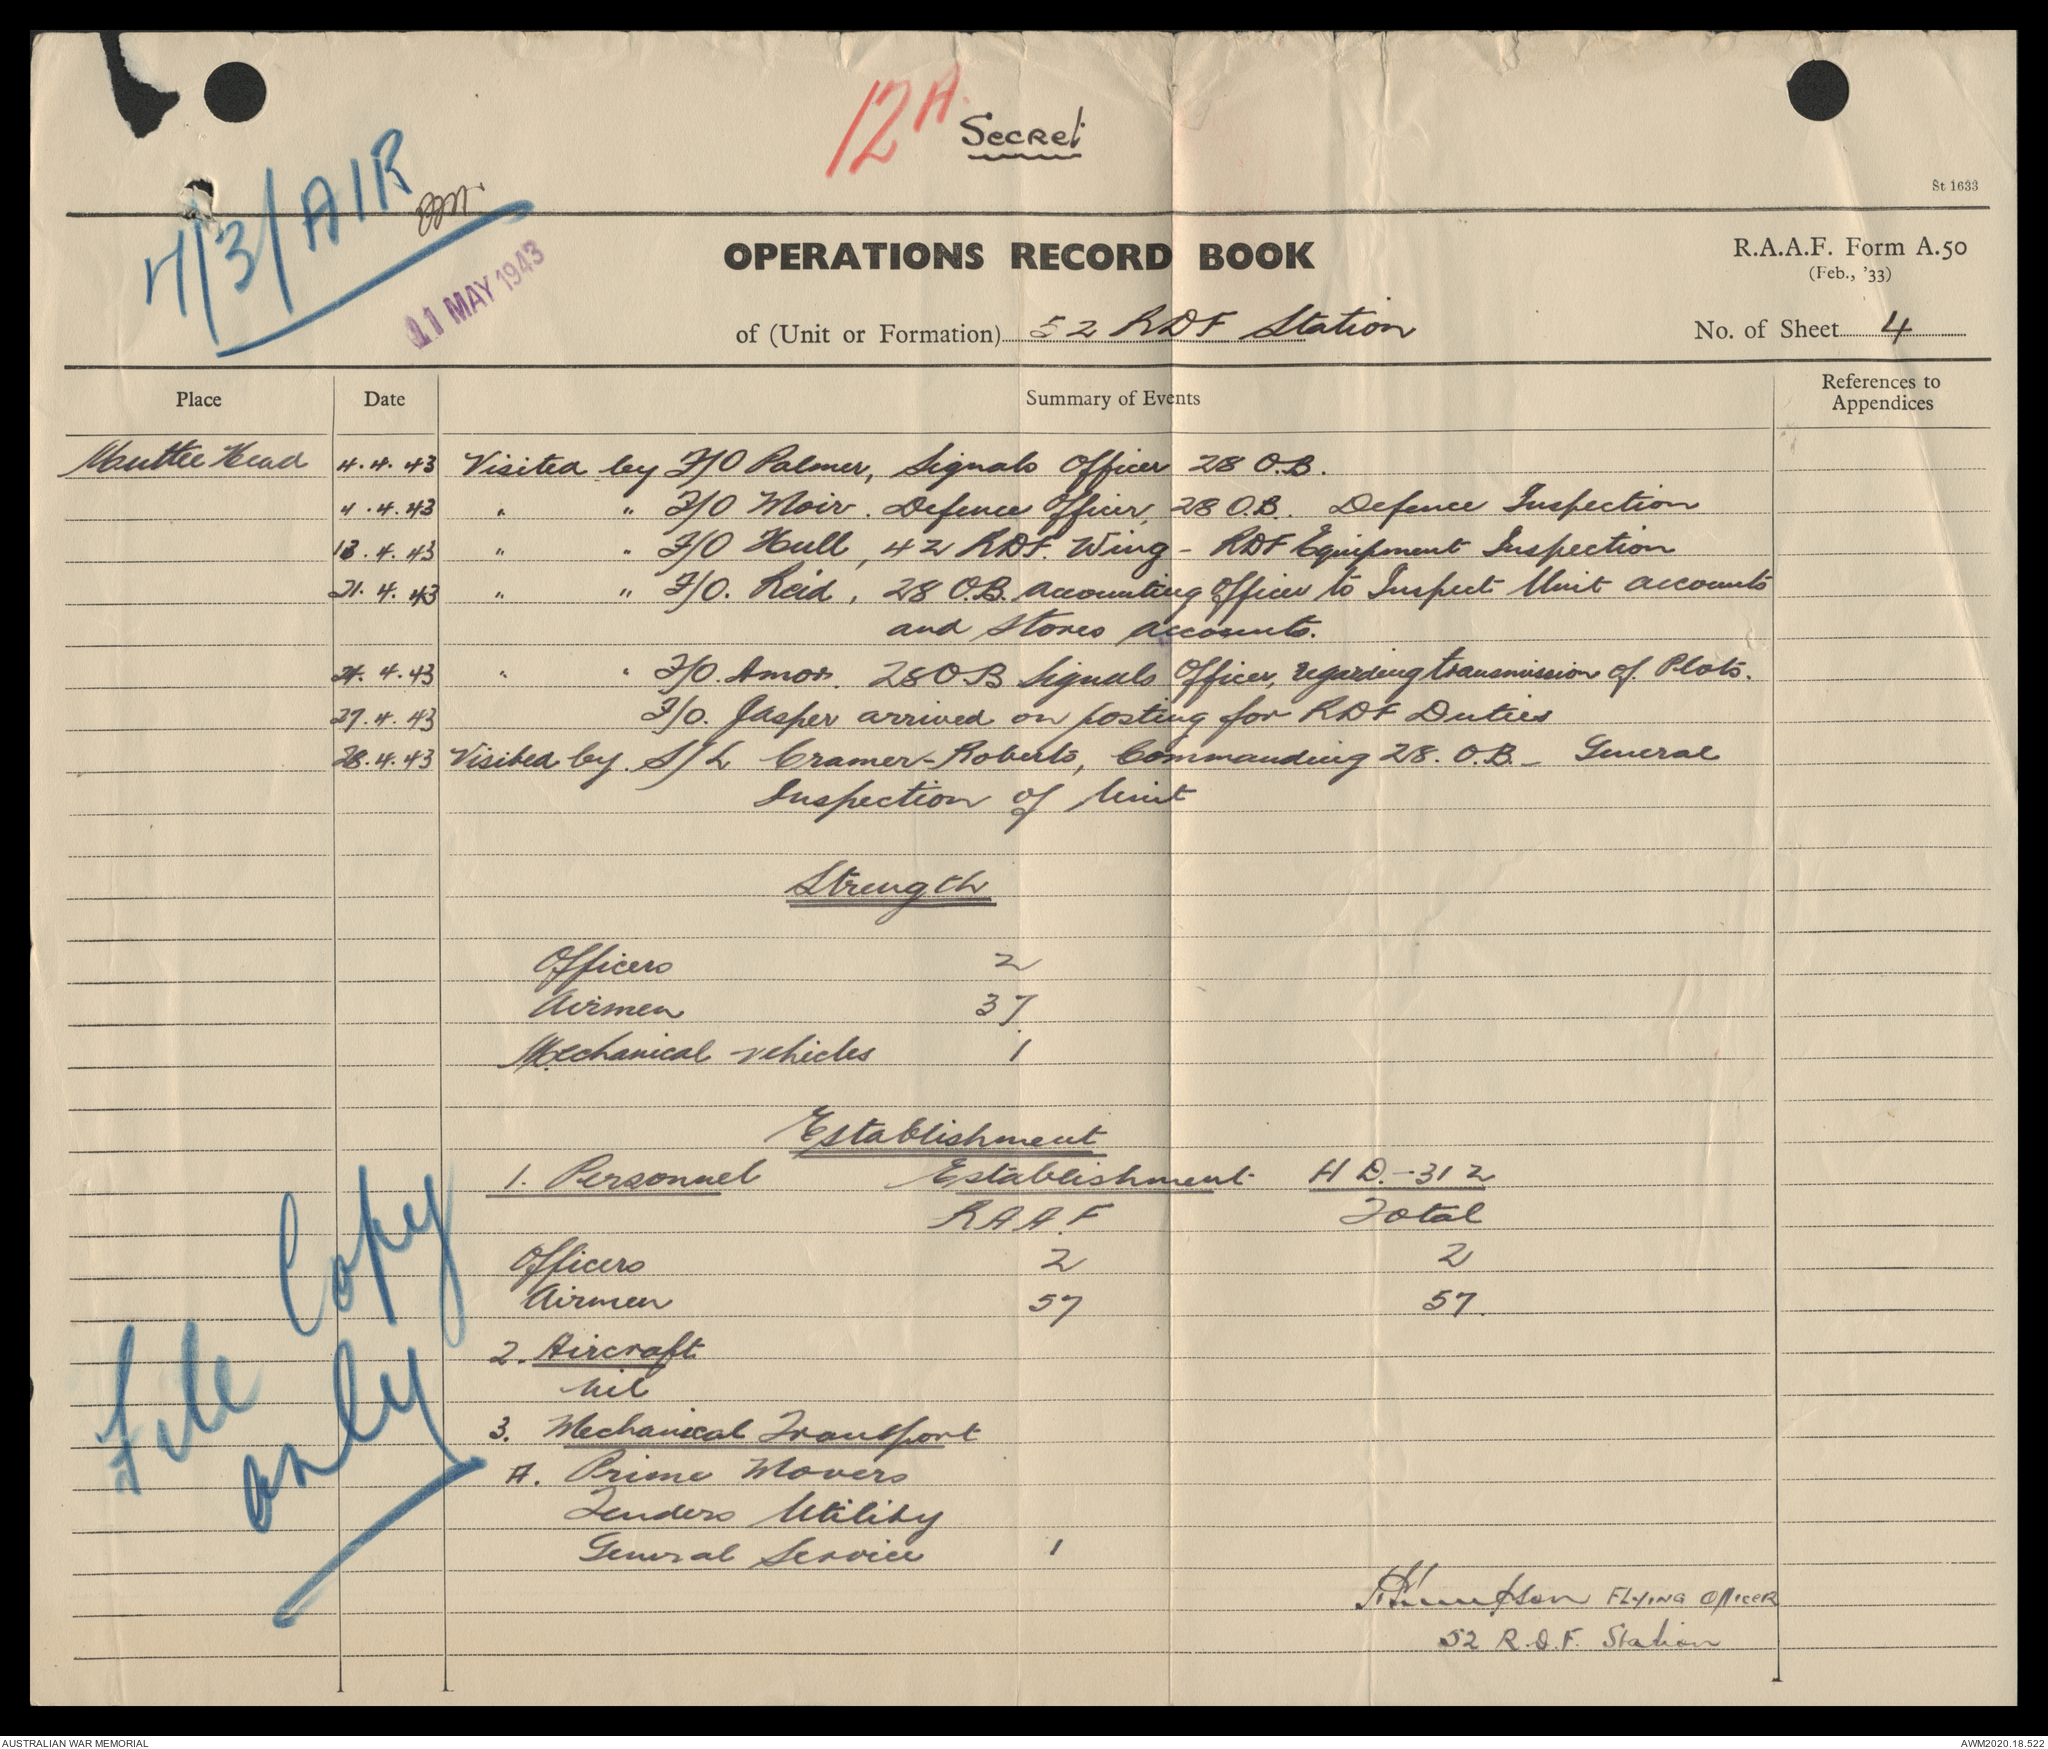 12A.
Secret
4/3/AIR
St 1633
11 MAY 1943
OPERATIONS RECORD BOOK
R.A.A.F. Form A.50
(Feb., '33)
of (Unit or Formation) 52 RDF Station
No. of Sheet 4
Place Date Summary of Events References to Appendices
Muttee Head 4.4.43 Visited by F/O Palmer, Signals Officer 28 O.B.
4.4.43 " " F/O Moir. Defence Officer, 28 O.B. Defence Inspection
13.4.43 " " F/O Hull, 42 RDF. Wing - RDF Equipment Inspection
21.4.43 " " F/O. Reid, 28 O.B. Accounting Officer to Inspect Unit accounts
and Stores accounts.
24.4.43 " " F/O. Amor. 28 O.B Signals Officer, regarding transmission of Plots.
27.4.43 F/O. Jasper arrived on posting for RDF Duties
28.4.43 Visited by S/L Cramer-Roberts, Commanding 28. O.B. - General
Inspection of Unit
Strength
Officers 2
Airmen 37
Mechanical vehicles 1
Establishment
1. Personnel Establishment HD.-312
RAAF. Total
Officers 2 2
Airmen 57 57.
2. Aircraft
nil
3. Mechanical Transport
A. Prime Movers
Tenders Utility
General Service 1
File Copy
only
FLYING OFFICER
52 R.D.F. Station
AUSTRALIAN WAR MEMORIAL
AWM2020.18.522